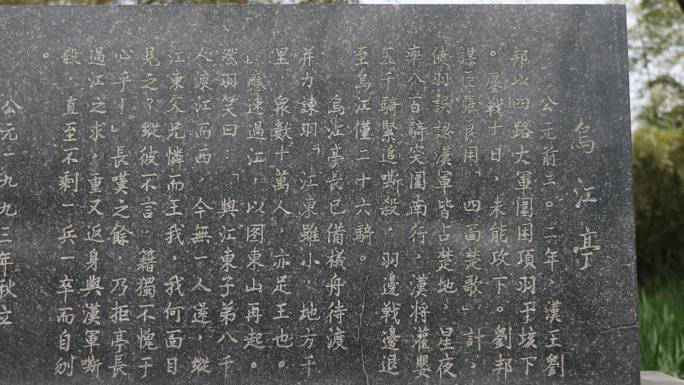 烏江亭
公元前二〇二年、漢王劉
邦以四路大軍圍困項羽于垓下
。屢戰十日，未能攻下。劉邦
謀臣張良用“四面楚歌”計，
使羽誤認漢軍皆占楚地，星夜
率八百騎突圍南行，漢將灌嬰
五千騎緊追嘶殺，羽邊戰邊退
至烏江僅二十六騎。
烏江亭長已備檥舟待渡
并力諫羽“江東雖小，地方千
里，眾數十萬人，亦足王也。
”應速過江，以图東山再起。
然羽笑曰：“與江東子弟八千
人渡江而西，今無一人還，縱
江東父兄憐而王我，我何面目
見之？縱彼不言，籍獨不愧于
心乎！”長嘆之餘，乃拒亭長
過江之求，重又返身與漢軍嘶
殺，直至不剩一兵一卒而自刎
。
公元一九九三年秋立